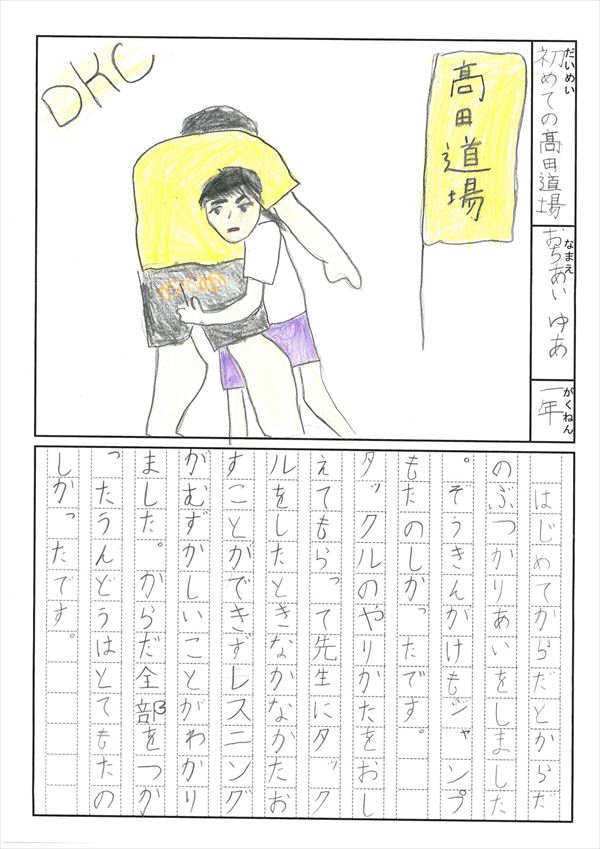 DKC
髙田道場
だいめい
初めての髙田道場
なまえ
おちあい ゆあ
がくねん
一年
はじめてからだとからだ
のぶつかりあいをしました
。ぞうきんがけもジャンプ
もたのしかったです。
タックルのやりかたをおし
えてもらって先生にタック
ルをしたときなかなかたお
すことができずレスニング
がむずかしいことがわかり
ました。からだ全部をつか
ったうんどうはとてもたの
しかったです。